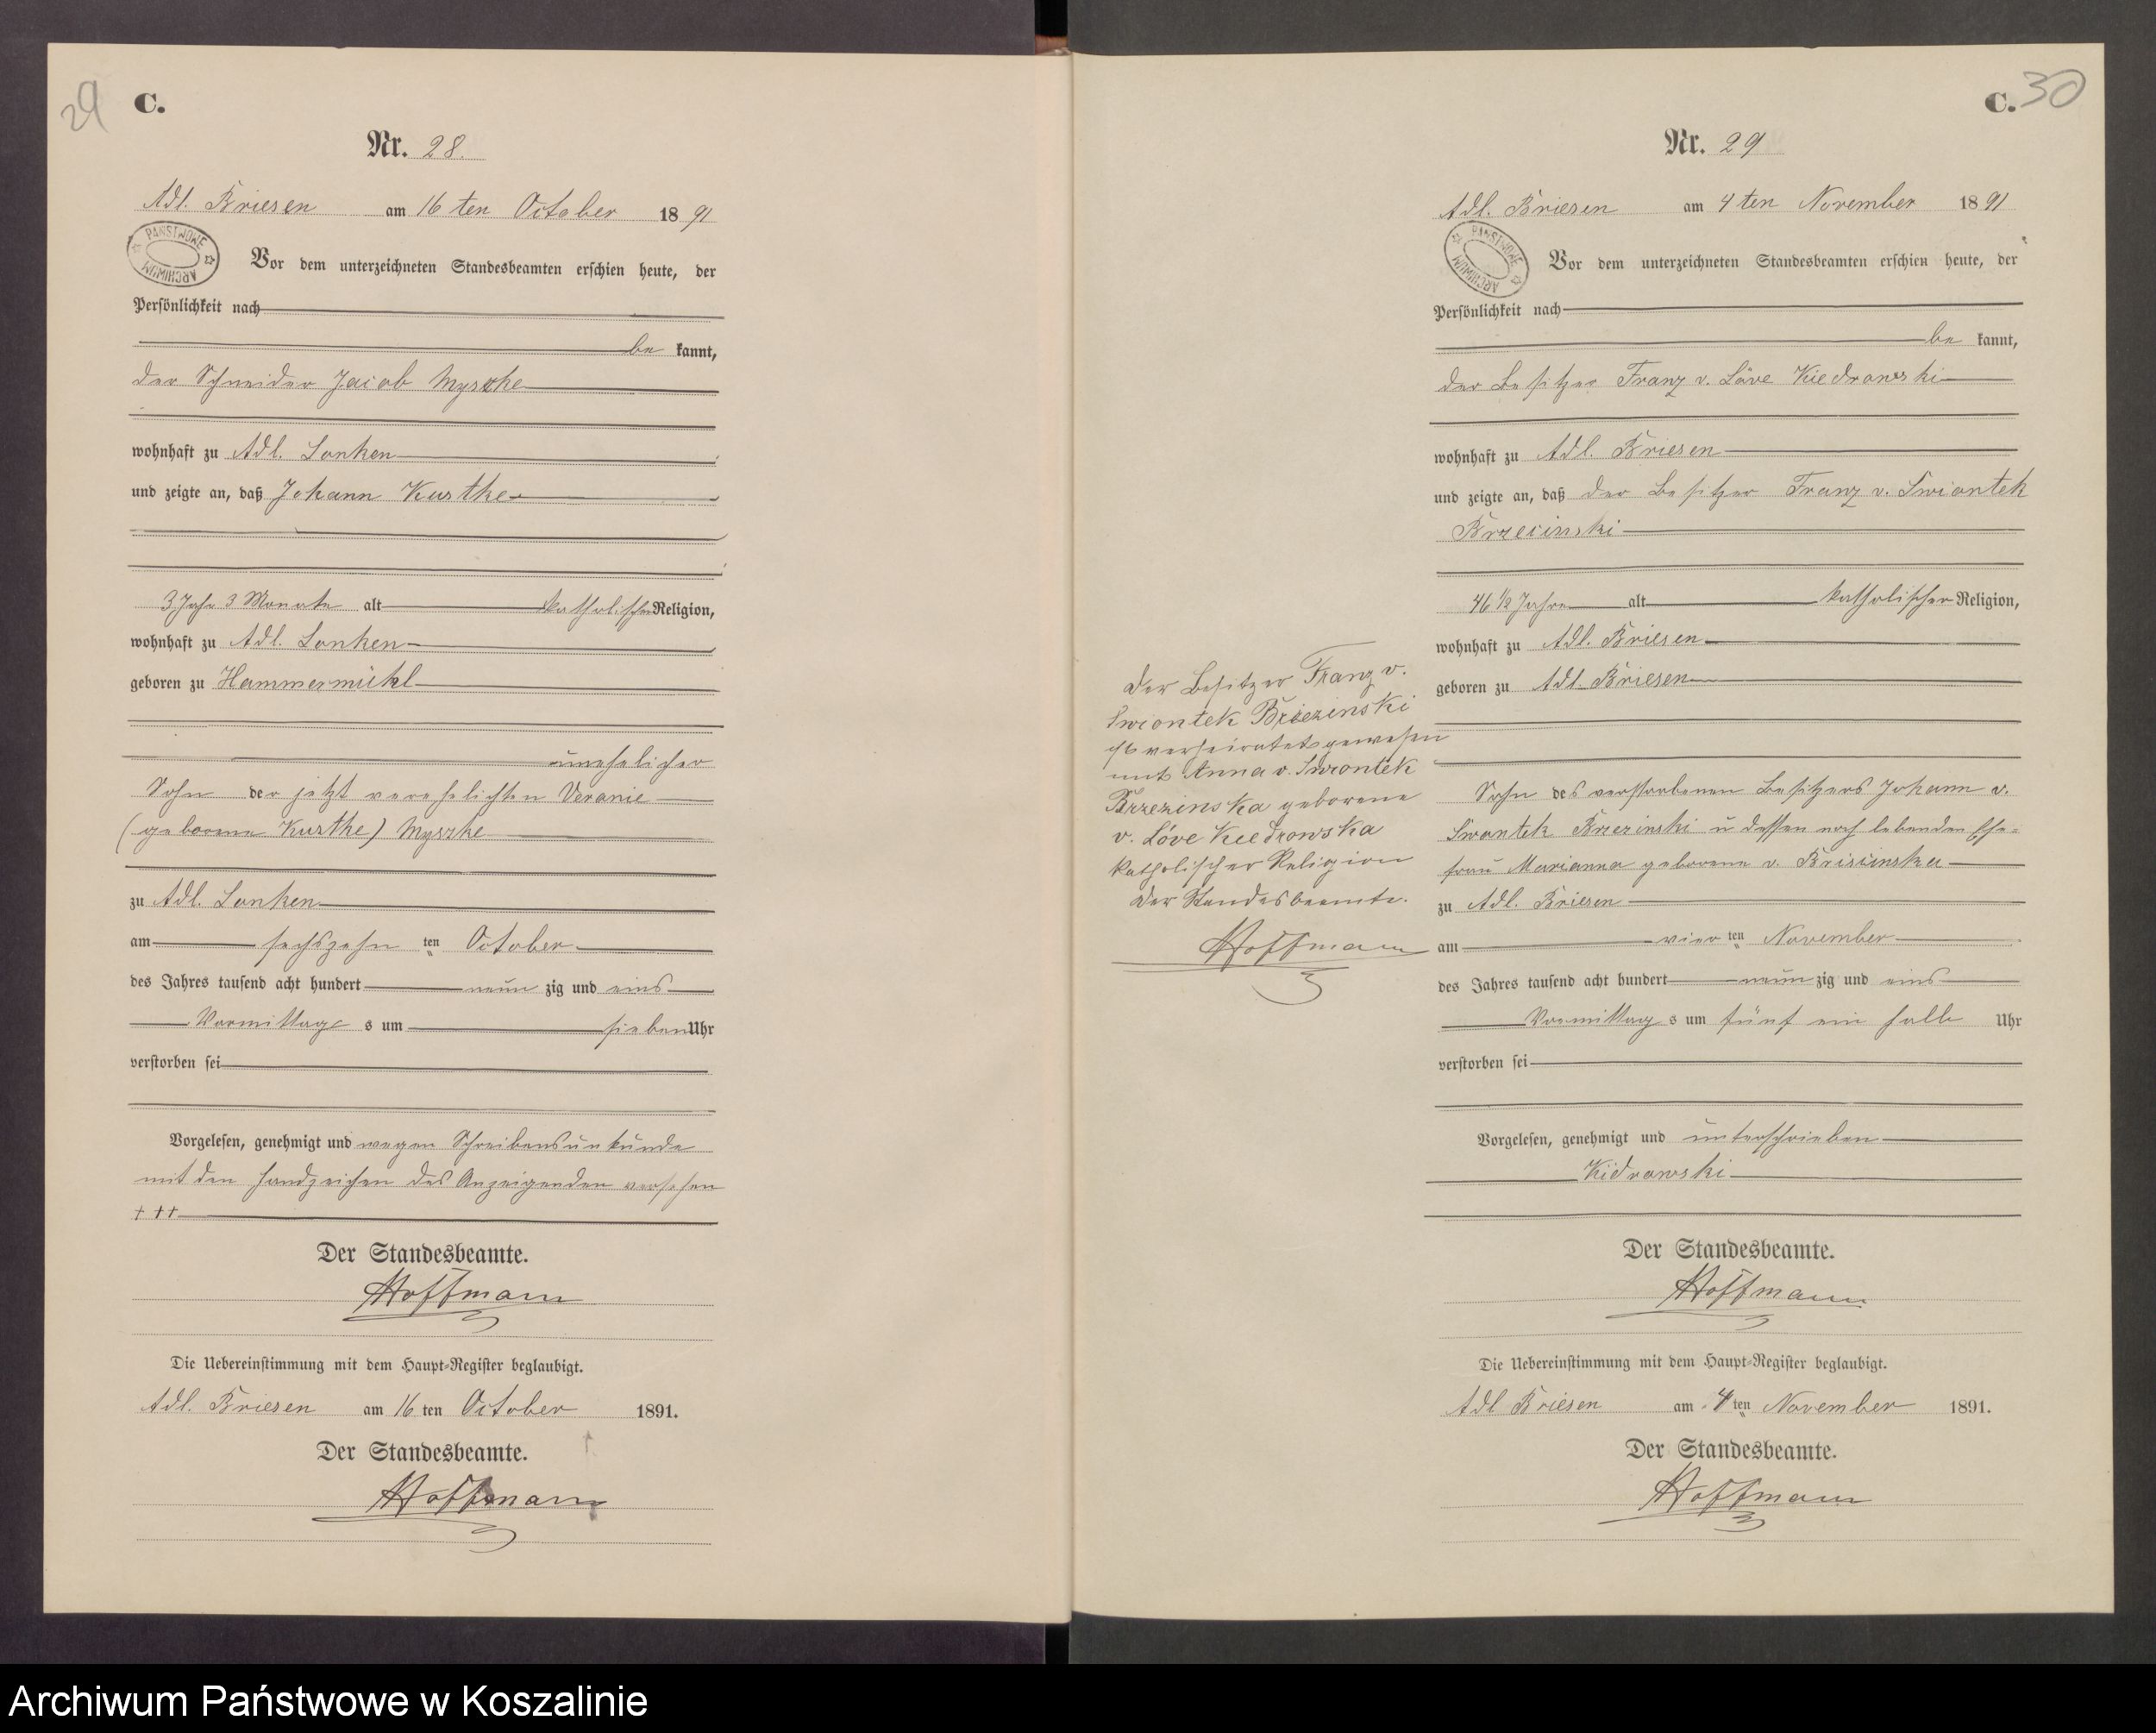 29
C.
Nr. 28.
Adl. Briesen am 16 ten October 1891
PAŃSTWOWE ARCHIWUM
Vor dem unterzeichneten Standesbeamten erschien heute, der
Persönlichkeit nach
be kannt,
der Schneider Jacob Myszke
wohnhaft zu Adl. Lonken
und zeigte an, daß Johann Kustke
3 Jahr 3 Monate alt katholischer Religion,
wohnhaft zu Adl. Lonken
geboren zu Hammermühl
unehelicher
Sohn der jetzt verehelichten Veranie
(geborene Kustke) Myszke
zu Adl. Lonken
am sechszehn ten October
des Jahres tausend acht hundert neun zig und eins
Vormittag s um sieben Uhr
verstorben sei
Vorgelesen, genehmigt und wegen Schreibensunkunde
mit den Handzeichen des Anzeigenden versehen
+ + +
Der Standesbeamte.
Hoffmann
Die Uebereinstimmung mit dem Haupt-Register beglaubigt.
Adl. Briesen am 16 ten October 1891.
Der Standesbeamte.
Hoffmann
C. 30
Nr. 29
Adl. Briesen am 4 ten November 1891
PAŃSTWOWE ARCHIWUM
Vor dem unterzeichneten Standesbeamten erschien heute, der
Persönlichkeit nach
be kannt,
der Besitzer Franz v. Löve Kiedrowski
wohnhaft zu Adl. Briesen
und zeigte an, daß der Besitzer Franz v. Swiontek
Brzecinski
46 1/2 Jahre alt katholischer Religion,
wohnhaft zu Adl. Briesen
geboren zu Adl. Briesen
Sohn des verstorbenen Besitzers Johann v.
Swontek Brzezinski u dessen noch lebenden Ehe-
frau Marianna geborene v. Brisinska
zu Adl. Briesen
am vier ten November
des Jahres tausend acht hundert neun zig und eins
Vormittag s um fünf ein halb Uhr
verstorben sei
Vorgelesen, genehmigt und unterschrieben
Kidrowski
Der Standesbeamte.
Hoffmann
Die Uebereinstimmung mit dem Haupt-Register beglaubigt.
Adl Briesen am 4 ten November 1891.
Der Standesbeamte.
Hoffmann
Der Besitzer Franz v.
Swiontek Brzezinski
ist verheiratet gewesen
mit Anna v. Swiontek
Brzezinska geborene
v. Löve Kiedrowska
katholischer Religion
Der Standesbeamte.
Hoffmann
Archiwum Państwowe w Koszalinie